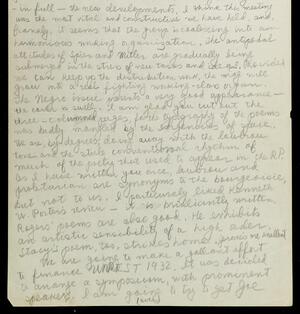 - in full - the new developments, I think the meeting
was the most vital and constructive we have held, and,
frankly, it seems that the group is coalescing into an
harmonious working organization, the
attitudes of Spier and Mitler are gradually being
submerged in the stress of new tasks and ideas. Provided
we can keep up the distribution end, the mag will
grow into a real fighting working-class organ.
The Negro issue presents a very good appearance -
we could a really. I am glad you cut out the
three-columned pages, for the typography of the poems
was badly mangled by the of space.
We are, by degrees, doing away with the lowbrow
tone and the stilted conversational rhythm of
much of the poetry that used to appear in the R.P.
As I have written you once, lowbrow and
proletarian are synonyms to the bourgeoisie,
but not to us. I particularly liked Kenneth
W. Porter's review - it is brilliantly written
Rogers' poems are also good. He exhibits
an artistic sensibility of a high order.
Stacy's poem, too, strikes home.
We are going to make a gallant effort
to finance UNREST 1932. It was decided
to arrange a symposium, with prominent
speakers. I am going to try to get Joe